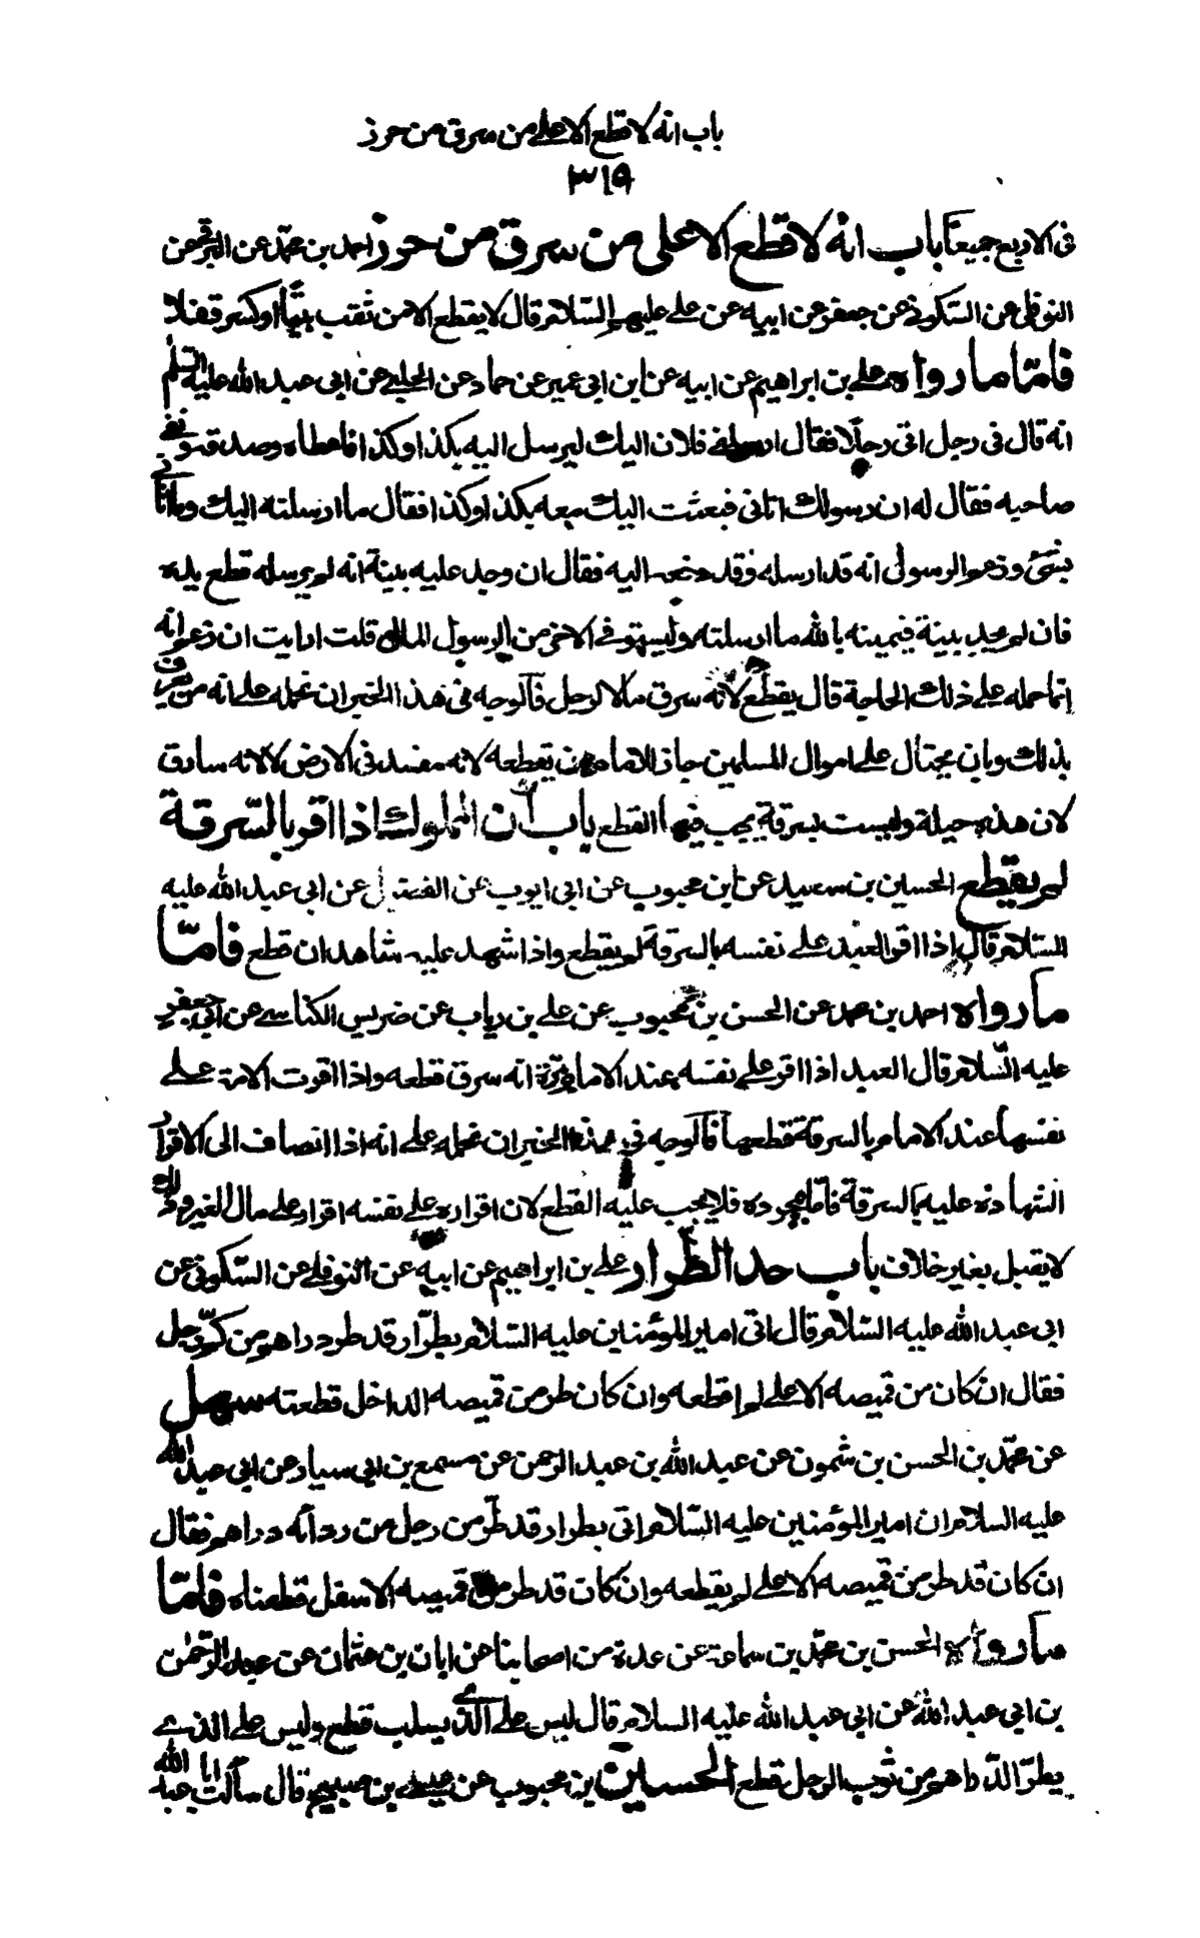 باب انه لا قطع الا على من سرق من حرز
٣١٩
فى الاربع جميعا باب انه لا قطع الا على من سرق من حرز احمد بن محمد عن البرقى عن
النوفلى عن السكونى عن جعفر عن ابيه عن على عليهم السلام قال لا يقطع الا من ثقب بيتا او كسر قفلا
فامّا ما رواه على بن ابراهيم عن ابيه عن ابن ابى عمير عن حماد عن الحلبى عن ابى عبد الله عليه السلم
انه قال فى رجل اتى رجلا فقال ارسلنى فلان اليك ليرسل اليه بكذا وكذا فاعطاه وصدقه فلقى
صاحبه فقال له ان رسولك اتانى فبعثت اليك معه بكذا وكذا فقال ما ارسلته اليك وما اتانى
بشئ وزعم الرسول انه قد ارسله وقد دفعه اليه فقال ان وجد عليه بينة انه لم يرسله قطع يده
فان لم يجد بينة فيمينه بالله ما ارسلته وليستوفى الاخر من الرسول المال قلت ارايت ان زعم انه
انما حمله على ذلك الحاجة قال يقطع لانه سرق مال الرجل فالوجه فى هذا الخبر ان نحمله على انه من يعرف
بذلك وبان يحتال على اموال المسلمين جاز للامام ان يقطعه لانه مفسد فى الارض لا لانه سارق
لان هذه حيلة وليست بسرقة يجب فيها القطع باب ان المملوك اذا اقر بالسّرقة
لم يقطع الحسين بن سعيد عن ابن محبوب عن ابى ايوب عن الفضيل عن ابى عبد الله عليه
السلام قال اذا اقر العبد على نفسه بالسرقة لم يقطع واذا شهد عليه شاهدان قطع فامّا
ما رواه احمد بن محمد عن الحسن بن محبوب عن على بن رياب عن ضريس الكناسى عن ابى جعفر
عليه السّلام قال العبد اذا اقر على نفسه عند الامام مرّة انه سرق قطعه واذا اقرت الامة على
نفسها عند الامام بالسرقة قطعها فالوجه فى هذا الخبر ان نحمله على انه اذا انضاف الى الاقرار
الشهادة عليه بالسرقة فامّا بمجرده فلا يجب عليه القطع لان اقراره على نفسه اقرار على مال الغير وذلك
لا يقبل بغير خلاف باب حد الطّرار على بن ابراهيم عن ابيه عن النوفلى عن السّكونى عن
ابى عبد الله عليه السّلام قال اتى امير المؤمنين عليه السّلام بطرّار قد طرّ دراهم من كمّ رجل
فقال ان كان من قميصه الاعلى لم اقطعه وان كان طر من قميصه الداخل قطعته سهل
عن محمّد بن الحسن بن شمون عن عبد الله بن عبد الرحمن عن مسمع بن ابى سيار عن ابى عبد الله
عليه السلام ان امير المؤمنين عليه السّلام اتى بطرار قد طرّ من رجل من ردائه دراهم فقال
ان كان قد طر من قميصه الاعلى لم يقطعه وان كان قد طر من قميصه الاسفل قطعناه فامّا
ما رواه الحسن بن محمّد بن سماعة عن عدة من اصحابنا عن ابان بن عثمان عن عبد الرّحمٰن
بن ابى عبد الله عن ابى عبد الله عليه السلام قال ليس على الّذى يسلب قطع وليس على الذى
يطرّ الدّراهم من ثوب الرجل قطع الحسين بن محبوب عن عيسى بن صبيح قال سألت ابا عبد الله